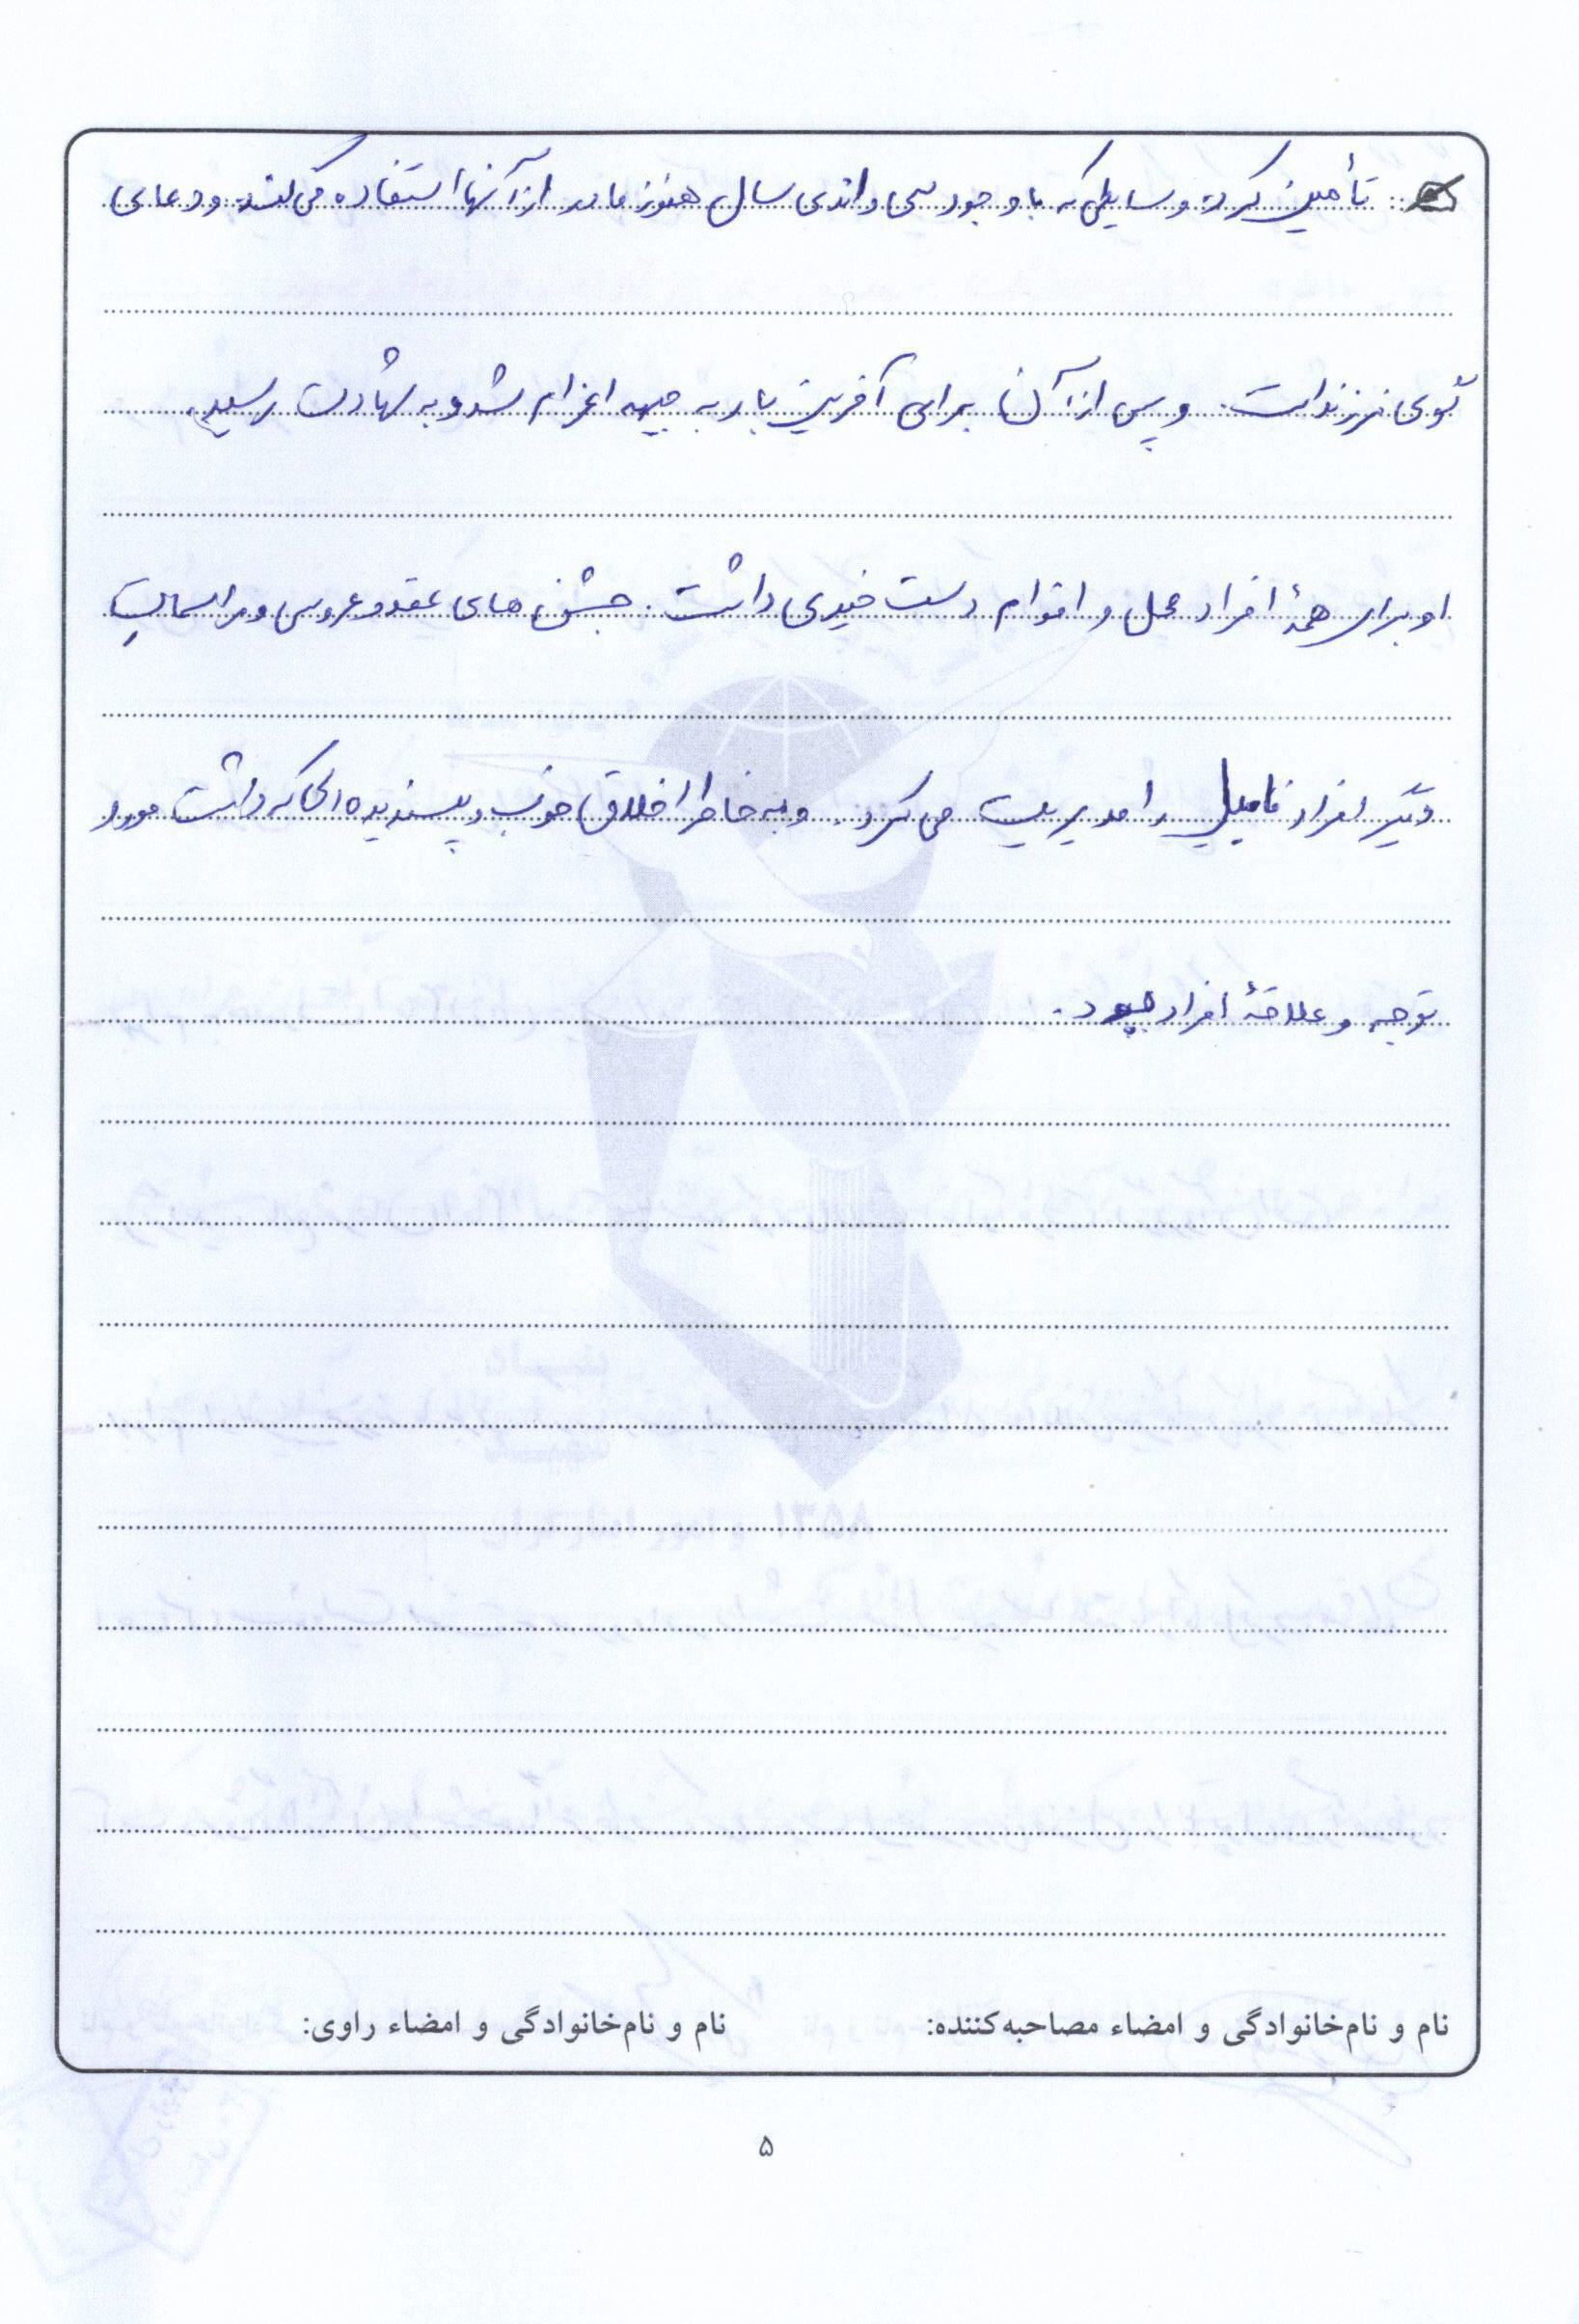 تأمین کرد. وسایلی که با وجود سی و اندی سال هنوز مادر از آنها استفاده می‌کند و دعای
فرزند است. و پس از آن برای آخرین بار به جبهه اعزام شد و به شهادت رسید.
او برای همهٔ افراد محل و اقوام دست خیری داشت. جشن های عقد و عروسی و مراسمات
دیگر افراد فامیل را مدیریت می کرد. و به خاطر اخلاق خوب و پسندیده‌ای که داشت مورد
توجه و علاقهٔ افراد بود.
نام و نام‌خانوادگی و امضاء مصاحبه‌کننده: نام و نام‌خانوادگی و امضاء راوی:
۵